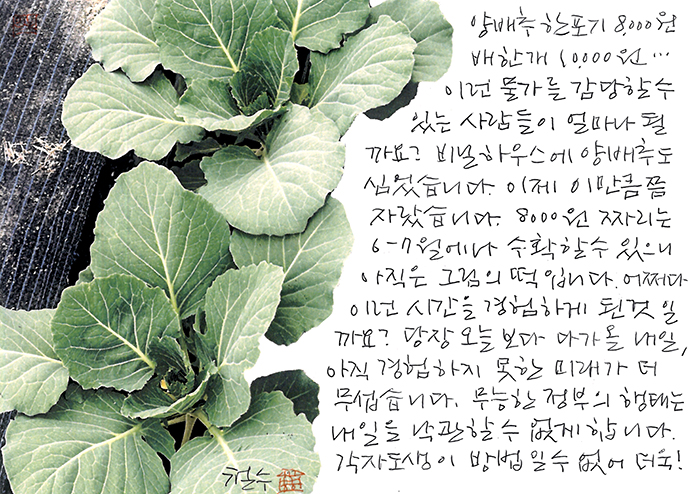 양배추 한포기 8,000원
배한개 10,000원…
이런 물가를 감당할수
있는 사람들이 얼마나 될
까요? 비닐하우스에 양배추도
심었습니다. 이제 이만큼쯤
자랐습니다. 8000원 짜리는
6-7월에나 수확할수 있으니
아직은 그림의 떡입니다. 어쩌다
이런 시간을 경험하게 된것 일
까요? 당장 오늘 보다 다가올 내일,
아직 경험하지 못한 미래가 더
무섭습니다. 무능한 정부의 행태는
내일을 낙관할 수 없게 합니다.
각자도생이 방법 일수 없어 더욱!
철수